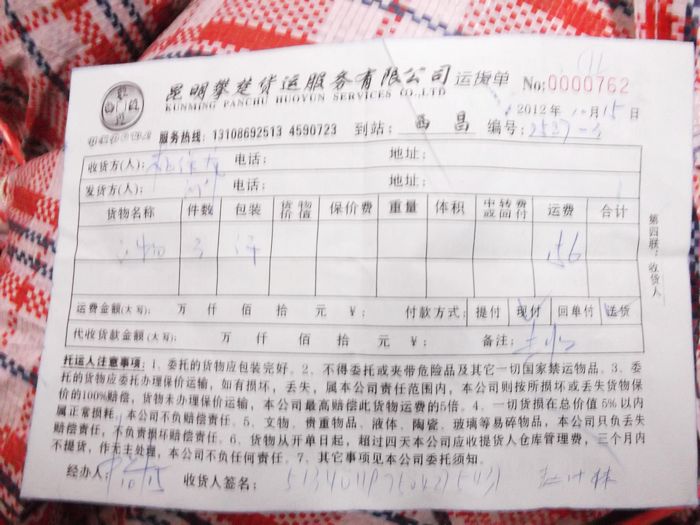 昆明攀楚货运服务有限公司 运货单 No:0000762
KUNMING PANCHU HUOYUN SERVICES CO.,LTD
2012年10月15日
服务热线：13108692513 4590723 到站：西昌 编号：2537-3
收货方(人)： 电话： 地址：
发货方(人)： 电话： 地址：
货物名称 件数 包装 货物价值 保价费 重量 体积 中转费或回付 运费 合计
156
运费金额(大写)： 万 仟 佰 拾 元 ¥： 付款方式： 提付 现付 回单付 送货
代收货款金额(大写)： 万 仟 佰 拾 元 ¥： 备注：
托运人注意事项：1、委托的货物应包装完好。2、不得委托或夹带危险品及其它一切国家禁运物品。3、委
托的货物应委托办理保价运输，如有损坏，丢失，属本公司责任范围内，本公司则按所损坏或丢失货物保
价的100%赔偿，货物未办理保价运输，本公司最高赔偿此货物运费的5倍。4、一切货损在总价值5%以内
属正常损耗，本公司不负赔偿责任。5、文物、贵重物品、液体、陶瓷、玻璃等易碎物品，本公司只负丢失
赔偿责任，不负责损坏赔偿责任。6、货物从开单日起，超过四天本公司应收提货人仓库管理费，三个月内
不提货，作无主处理，本公司不负任何责任。7、其它事项见本公司委托须知。
经办人： 收货人签名：
第四联：收货人